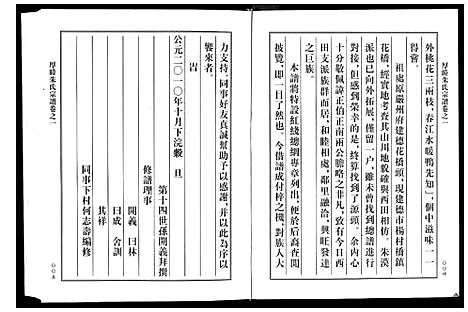 厚畤朱氏宗譜卷之一
外桃花三兩枝，春江水暖鴨先知」，個中滋味一一
祖處原嚴州府建德花橋頭，現建德市楊村橋鎮
花橋，經實地考查其山川地貌確與西田相仿。朱漠
派也已向外拓展，僅留一户，雖未曾找到總譜進行
校對，但感到榮幸的是，終算找到了源頭。余内心
十分敬佩諱正伯正南兩公膽略之非凡，致有今日西
田支派族群而居，和睦相處，鄰里融洽，興旺發達
之巨族。
本譜將特設紅綫總綱專章列出，便於后裔查閱
披覽，即一目了然也。今借譜成付梓之機，對族人大
〇〇四
厚畤朱氏宗譜卷之一
力支持，同事好友真誠幫助予以感謝，并以此為序以
饗來者。
旹
公元二〇一〇年十月下浣穀 旦
第十四世孫開義拜撰
修譜理事
開義 曰林
曰成 舍訓
其祥
同事下村何志壽編修
〇〇五